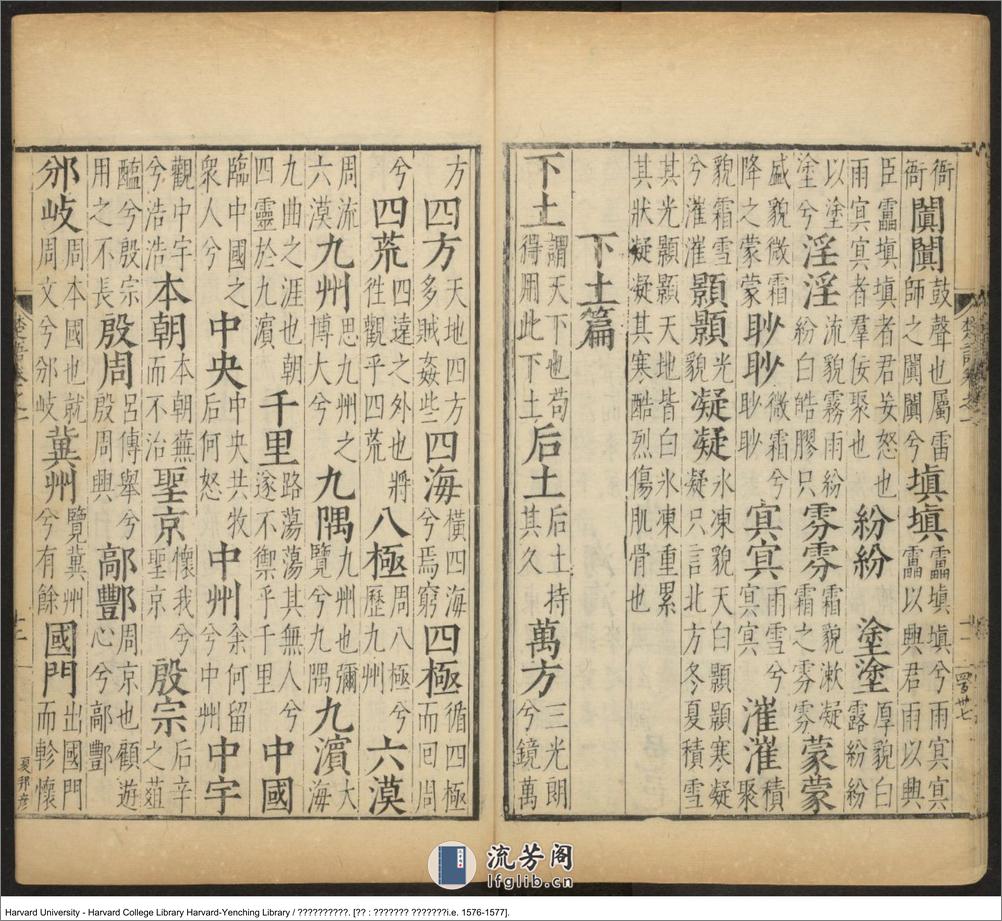 衙衙闐闐鼓聲也屬雷師之闐闐兮填填靁填填兮雨冥冥靁以興君雨以興
臣靁填填者君妄怒也雨冥冥者羣佞聚也紛紛塗塗厚貌白露紛紛
以塗塗兮淫淫流貌霧雨紛紛白皓膠只雰雰霜貌漱凝霜之雰雰蒙蒙
盛貌微霜降之蒙蒙眇眇微霜兮眇眇冥冥雨雪兮冥冥漼漼積聚
貌霜雪兮漼漼顥顥凝凝氷凍貌天白顥顥寒凝凝只言北方冬夏積雪
其光顥顥天地皆白氷凍重累其狀凝凝其寒酷烈傷肌骨也
下土篇
下土謂天下也苟得用此下土后土后土持其久萬方三光朗兮鏡萬
方四方天地四方多賊姦些四海橫四海兮焉窮四極循四極而回周
兮四荒四遠之外也將徃觀乎四荒八極周八極兮歷九州六漠
周流六漠九州思九州之博大兮九隅九州也彌覽兮九隅九濵大海
九曲之涯也朝四靈於九濵千里路蕩蕩其無人兮遂不禦乎千里中國
臨中國之衆人兮中央中央共牧后何怒中州余何留兮中州中宇
觀中宇兮浩浩本朝本朝蕪而不治聖京懷我兮聖京殷宗后辛之葅
醢兮殷宗用之不長殷周呂傅舉兮殷周興鄗酆周京也顧遊心兮鄗酆
邠岐周本國也就周文兮邠岐冀州覽冀州兮有餘國門出國門而軫懷
夏邦彥
流芳阁
lfglib.cn
Harvard University - Harvard College Library Harvard-Yenching Library / ??????????. [?? : ??????? ???????i.e. 1576-1577].